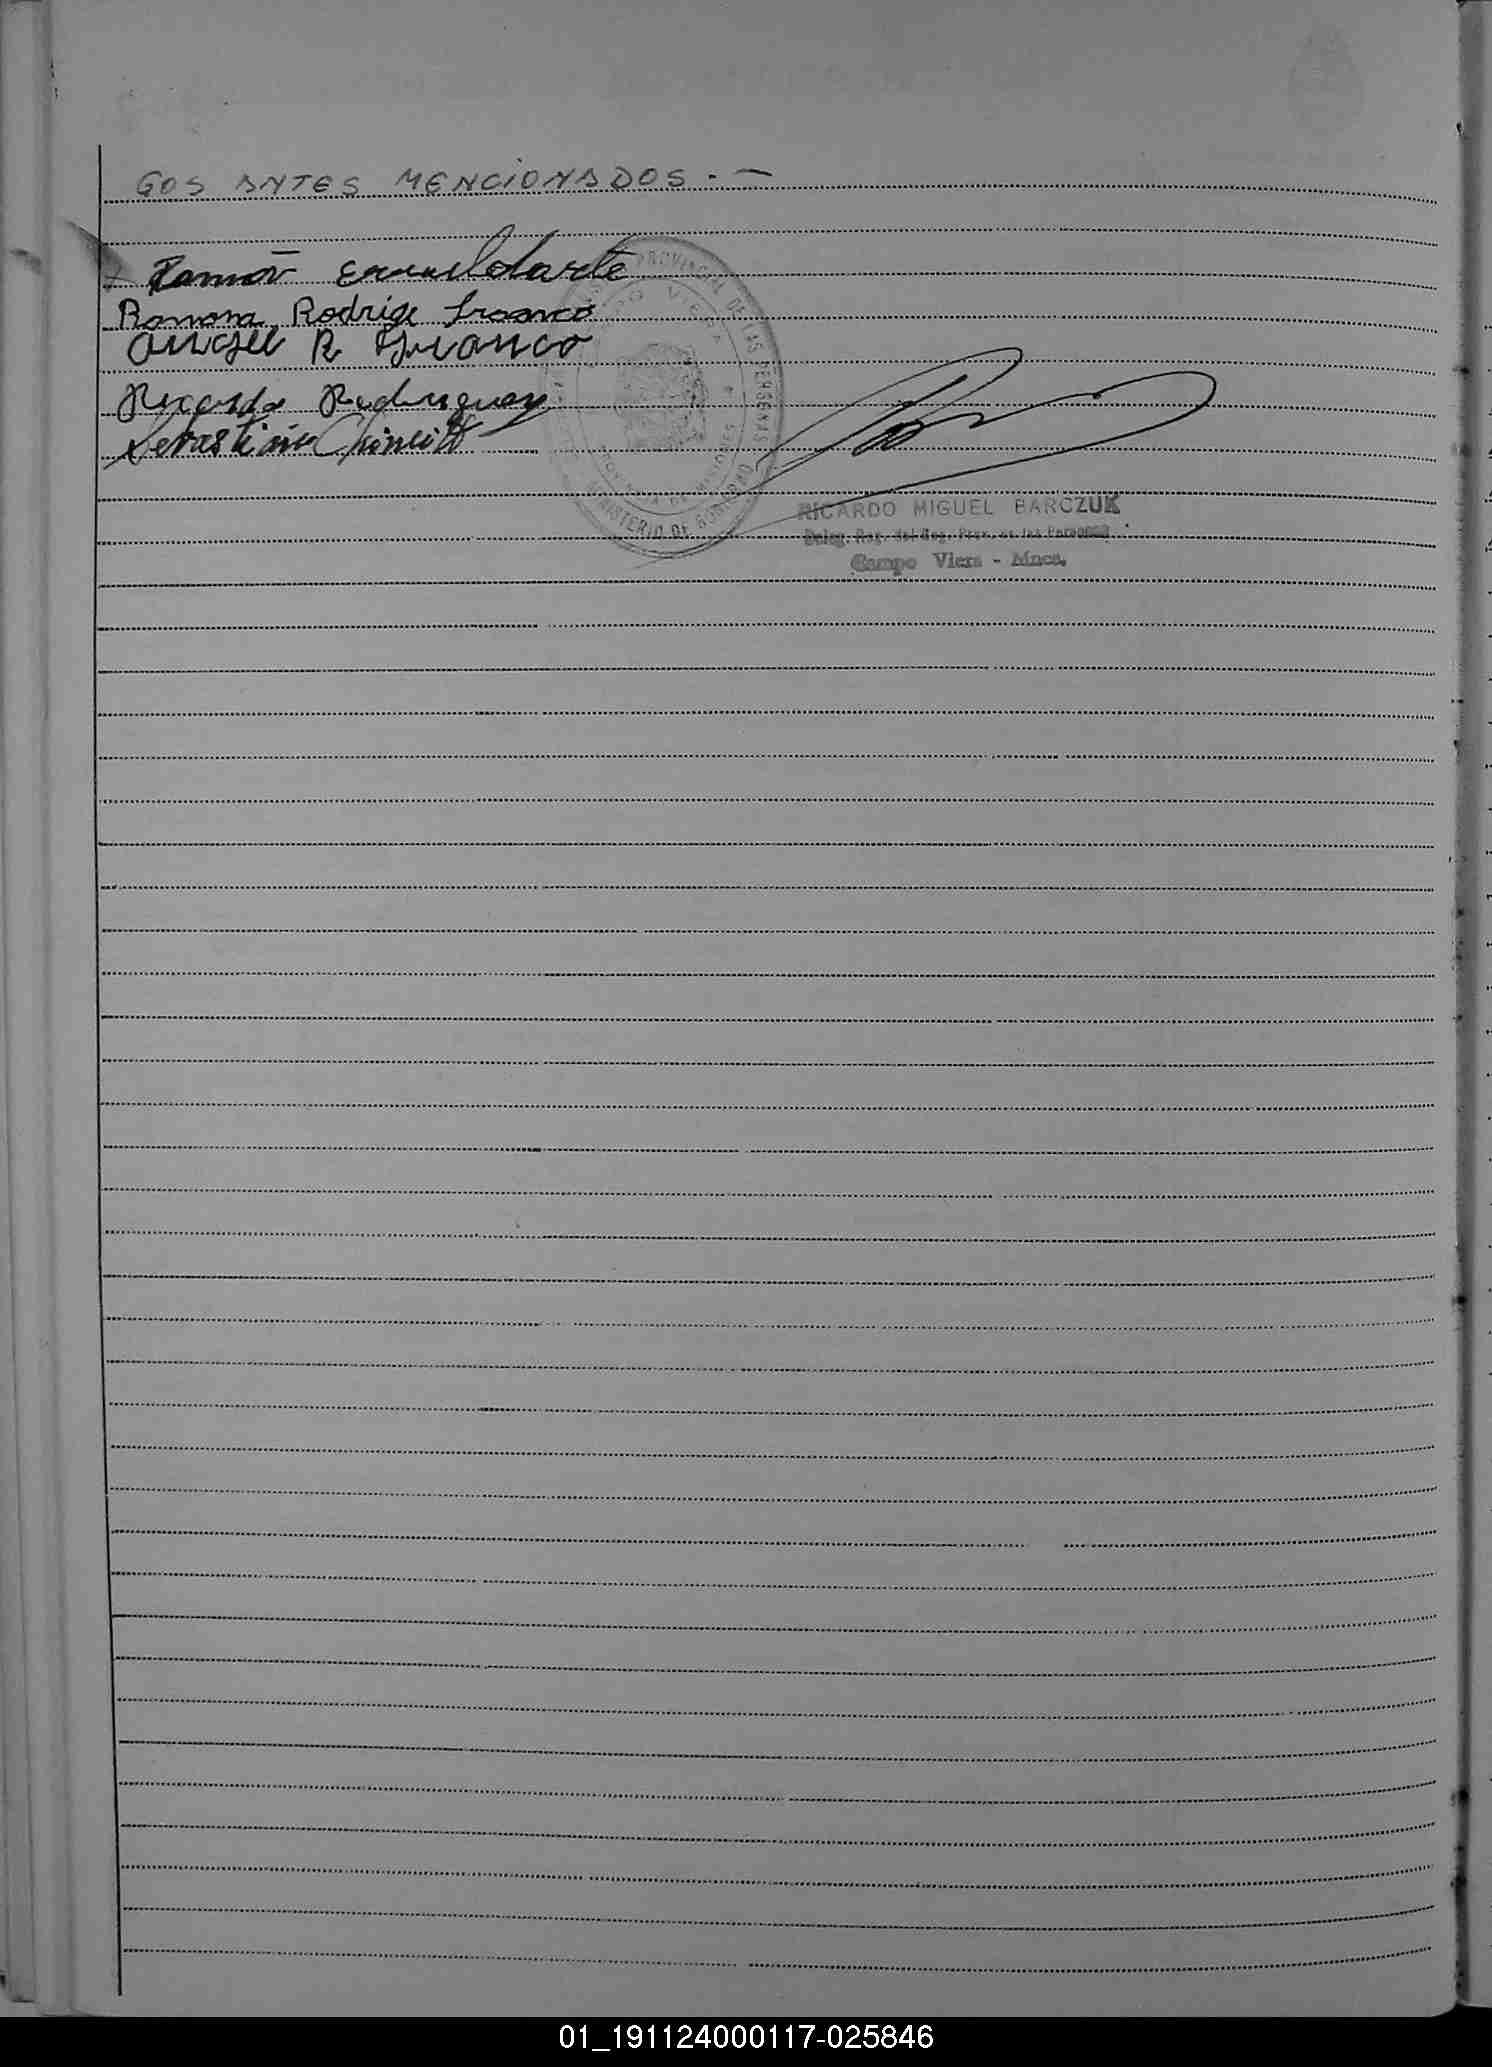 GOS ANTES MENCIONADOS.-
Ramon
Ramona Rodrige Franco
Angel R Franco
Ricardo Rodriguez
Sebastian
PROVINCIAL DE LAS PERSONAS
CAMPO VIERA
PROVINCIA DE MISIONES
MINISTERIO DE GOBIERNO
RICARDO MIGUEL BARCZUK
Deleg. Reg. del Reg. Prov. de las Personas
Campo Viera - Mnes.
01_191124000117-025846